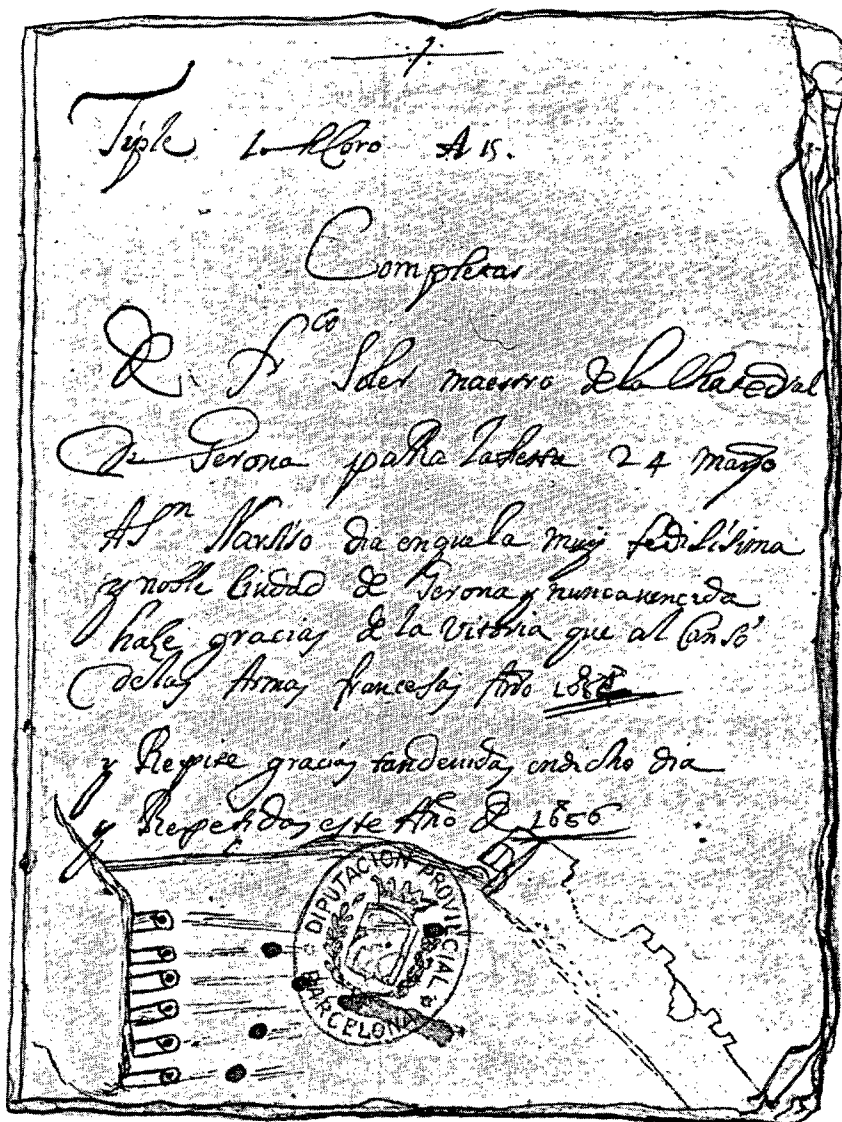 Tiple 1. Choro A 15.
Completas
De frco Soler maestro de la Chatedral
De Gerona pa la fiesta 24 mayo
A Sn Narsiso dia en que la muy fidilisima
y noble Ciudad de Gerona y nunca vencida
hase gracias de la vitoria que al Canso
de las Armas francesas Año
y Repite gracias tan devidas en dicho dia
y Repetidas este Año De 1686
DIPUTACION PROVINCIAL
BARCELONA